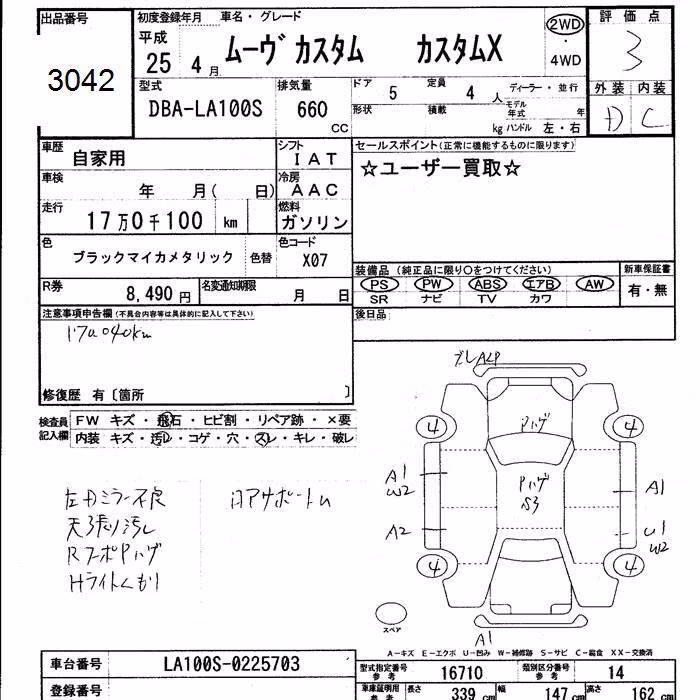 出品番号
3042
初度登録年月 車名・グレード
平成
25 4 月 ムーヴ カスタム カスタムX
2WD
・
4WD
評価点
3
外装 内装
D C
型式
DBA-LA100S
排気量
660
CC
ドア 5 定員 4 人
ディーラー・並行
形状 積載 kg
モデル年式 年
ハンドル 左・右
車歴
自家用
シフト
IAT
車検
年 月( 日)
冷房
AAC
走行
17万0千100 km
燃料
ガソリン
色
ブラックマイカメタリック 色替
色コード
X07
R券
8,490 円
名変通知期限
月 日
セールスポイント(正常に機能するものに限ります)
☆ユーザー買取☆
装備品(純正品に限り○をつけてください)
PS PW ABS エアB AW
SR ナビ TV カワ
新車保証書
有・無
後日品
注意事項申告欄(不具合内容等は具体的に記入して下さい)
170040km
修復歴 有〔箇所 〕
検査員
記入欄
FW キズ・飛石・ヒビ割・リペア跡・×要
内装 キズ・汚レ・コゲ・穴・スレ・キレ・破レ
左Dミラー不良
天張り汚し
RフーポPハゲ
Hライトくもり
ズレ A4P
4 4
Pハゲ
A1
W2
Pハゲ
S3
A1
A2
U1
W2
4 4
スペア
A1
A-キズ E-エクボ U-凹み W-補修跡 S-サビ C-腐食 XX-交換済
車台番号
LA100S-0225703
登録番号
型式指定番号
参考
16710
類別区分番号
参考
14
車庫証明用
参考
長さ 339 cm 幅 147 cm 高さ 162 cm